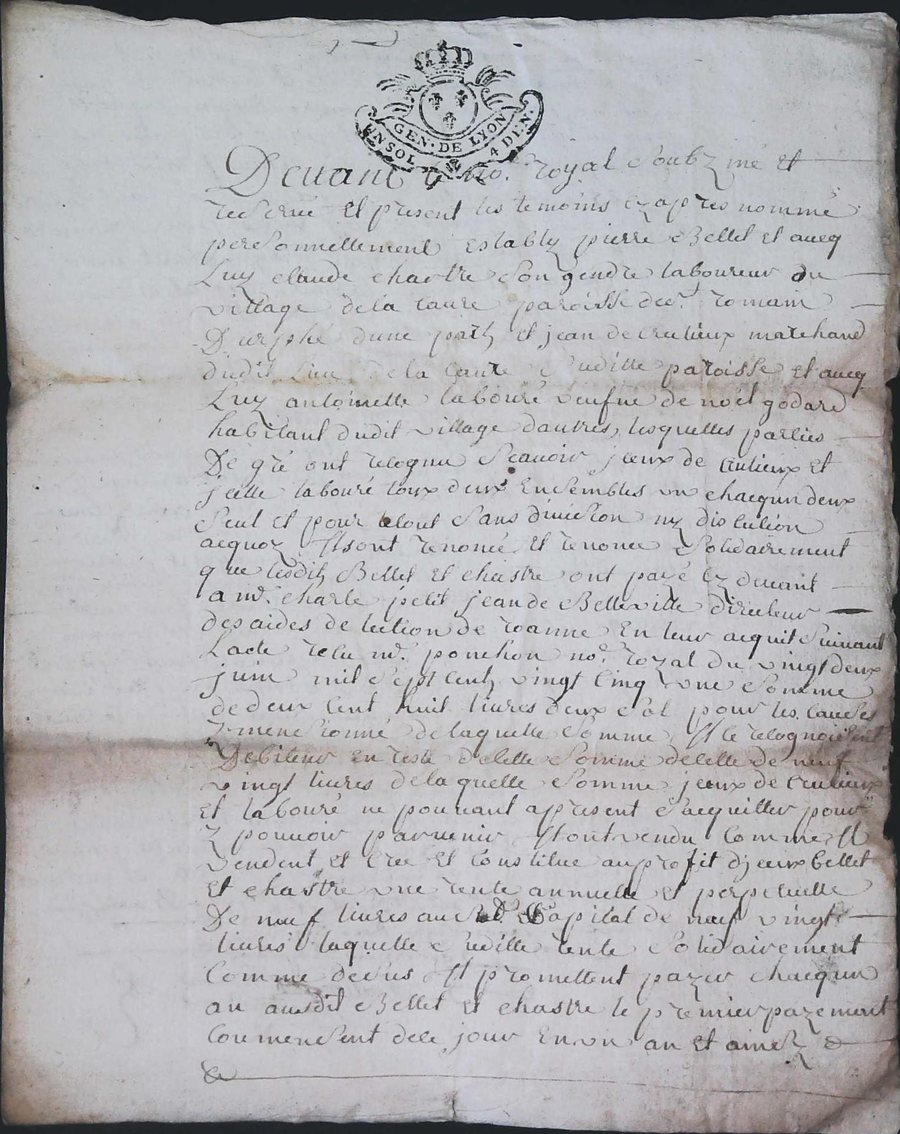 GEN · DE LYON
UN SOL 4 DEN ·
Devant le no.re royal soubz né et
reservé et present les temoins cy apres nommé
personnellement estably pierre Bellet et aveq
Luy claude chastre son gendre laboureur du
village de la
D'urphé d'une part et jean de crutieux marchand
dudit lieu de la susditte paroisse et aveq
Luy antoinette labouré veufve de noel godard
habitant dudit village d'autres, lesquelles parties
De gré ont recognu scavoir jceux de crutieux et
jcelle labouré toux deux ensembles un chacqun deux
seul et pour le tout sans division ny
acquoy Ils ont renoncé et renonce solidairement
que lesdits Bellet et chastre ont payé cy devant
a mr. charle petit jean de Belleville directeur
des aides de lection de roanne en leur acquit suivant
Lacte recu mr. ponchon nore. royal du vingt deux
juin mil sept cent vingt cinq une somme
de deux cent huit livres deux sol pour les causes
y mensionné de laquelle somme Il se recognoissent
Debiteur en reste d'icelle somme de celle de neuf
vingt livres de laquelle somme jceux de crutieux
et labouré ne pouvant apresent s'acquitter pour
y pouvoir parvenir Il ont vendu comme Il
vendent et cree et constitue au profit djceux bellet
et chastre une rente annuelle et perpetuelle
De neuf livres au Capital de neuf vingt
livres laquelle susditte rente solidairement
comme dessus Il promettent payer chacqun
an ausdit Bellet et chastre le premier payement
coumensent de ce jour en un an et ainsy &
&